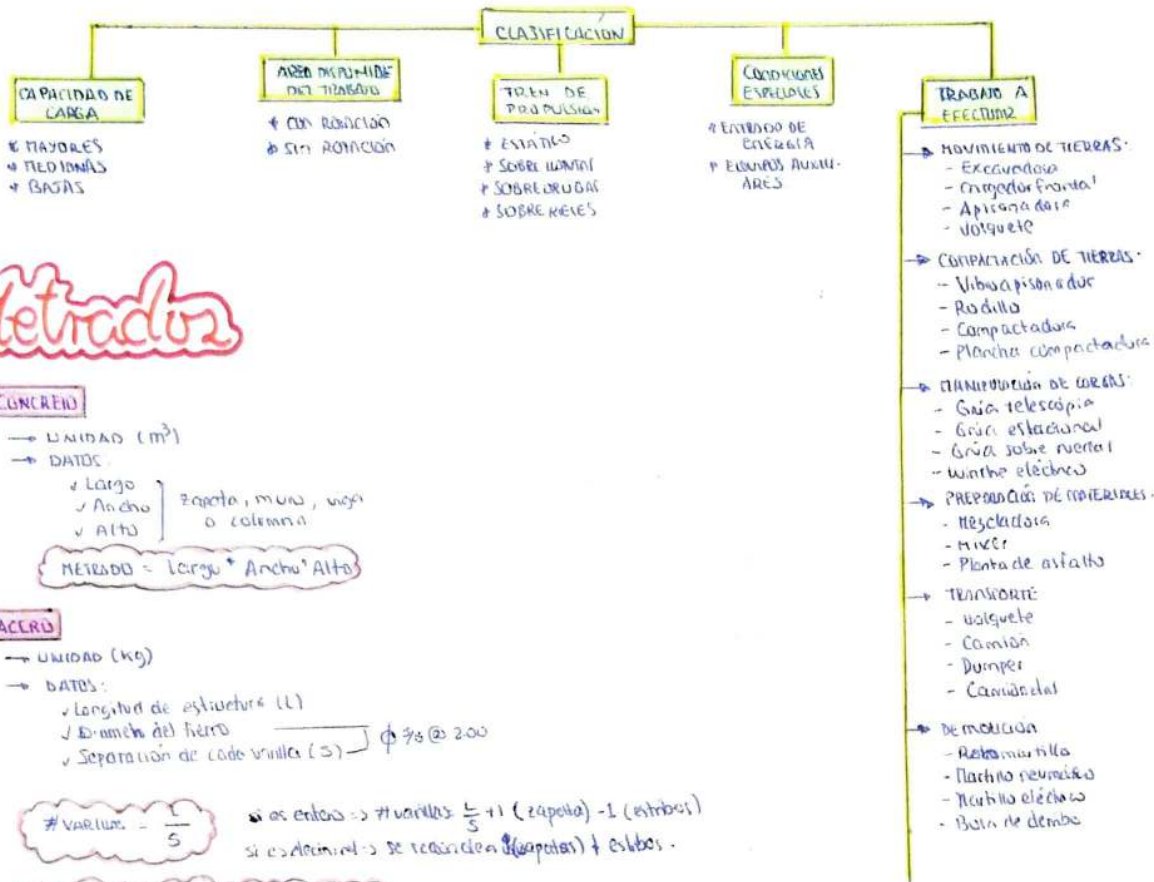 CLASIFICACIÓN
CAPACIDAD DE
CARGA
* MAYORES
* MEDIANAS
* BAJAS
AREA DISPONIBLE
DEL TRABAJO
* CON ROTACIÓN
* SIN ROTACIÓN
TREN DE
PROPULSION
* ESTÁTICO
* SOBRE LLANTAS
* SOBRE ORUGAS
* SOBRE RIELES
CONDICIONES
ESPECIALES
* ENTRADO DE
ENERGÍA
* EQUIPOS AUXILI-
ARES
TRABAJO A
EFECTUAR
→ MOVIMIENTO DE TIERRAS:
- Excavadora
- Cargador frontal
- Apisonadora
- Volquete
→ COMPACTACIÓN DE TIERRAS:
- Vibroapisonador
- Rodillo
- Compactadora
- Plancha compactadora
→ MANIPULACIÓN DE CARGAS:
- Grúa telescópia
- Grúa estacional
- Grúa sobre ruedas
- Winche eléctrico
→ PREPARACIÓN DE MATERIALES:
- Mezcladora
- Mixer
- Planta de asfalto
→ TRANSPORTE:
- Volquete
- Camión
- Dumper
- Camionetas
→ DEMOLICIÓN
- Rotomartillo
- Martillo neumático
- Martillo eléctrico
- Bola de
Metrados
CONCRETO
→ UNIDAD (m³)
→ DATOS:
✓ Largo
✓ Ancho
✓ Alto
zapata, muro, viga
o columna
METRADO = Largo * Ancho * Alto
ACERO
→ UNIDAD (Kg)
→ DATOS:
✓ Longitud de estructura (L)
✓ Diámetro del fierro
✓ Separación de cada varilla (S)
@ 2.00
# VARILLAS = L/S
si es entero => # varillas = L/S +1 (zapata) -1 (estribos)
si es decimal => se (zapatas) estribos.